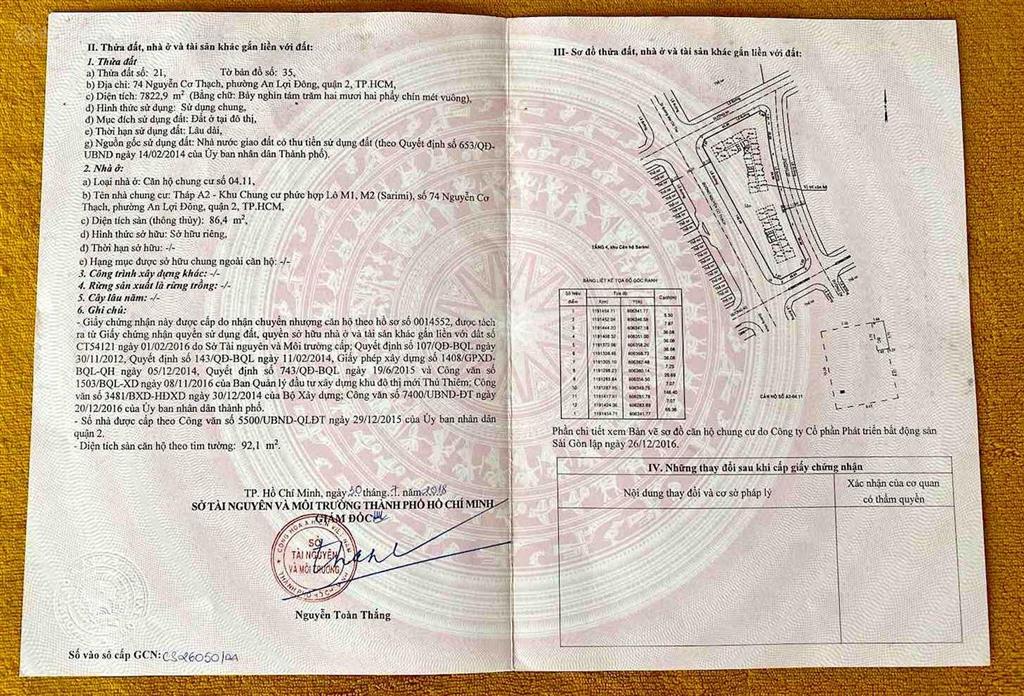 II. Thửa đất, nhà ở và tài sản khác gắn liền với đất:
1. Thửa đất
a) Thửa đất số: 21, Tờ bản đồ số: 35,
b) Địa chỉ: 74 Nguyễn Cơ Thạch, phường An Lợi Đông, quận 2, TP.HCM,
c) Diện tích: 7822,9 m² (Bằng chữ: Bảy nghìn tám trăm hai mươi hai phẩy chín mét vuông),
d) Hình thức sử dụng: Sử dụng chung,
đ) Mục đích sử dụng đất: Đất ở tại đô thị,
e) Thời hạn sử dụng đất: Lâu dài,
g) Nguồn gốc sử dụng đất: Nhà nước giao đất có thu tiền sử dụng đất (theo Quyết định số 653/QĐ-
UBND ngày 14/02/2014 của Ủy ban nhân dân Thành phố).
2. Nhà ở:
a) Loại nhà ở: Căn hộ chung cư số 04.11,
b) Tên nhà chung cư: Tháp A2 - Khu Chung cư phức hợp Lô M1, M2 (Sarimi), số 74 Nguyễn Cơ
Thạch, phường An Lợi Đông, quận 2, TP.HCM,
c) Diện tích sàn (thông thủy): 86,4 m²,
d) Hình thức sở hữu: Sở hữu riêng,
đ) Thời hạn sở hữu: -/-
e) Hạng mục được sở hữu chung ngoài căn hộ: -/-
3. Công trình xây dựng khác: -/-
4. Rừng sản xuất là rừng trồng: -/-
5. Cây lâu năm: -/-
6. Ghi chú:
- Giấy chứng nhận này được cấp do nhận chuyển nhượng căn hộ theo hồ sơ số 0014552, được tách
ra từ Giấy chứng nhận quyền sử dụng đất, quyền sở hữu nhà ở và tài sản khác gắn liền với đất số
CT54121 ngày 01/02/2016 do Sở Tài nguyên và Môi trường cấp; Quyết định số 107/QĐ-BQL ngày
30/11/2012, Quyết định số 143/QĐ-BQL ngày 11/02/2014, Giấy phép xây dựng số 1408/GPXD-
BQL-QH ngày 05/12/2014, Quyết định số 743/QĐ-BQL ngày 19/6/2015 và Công văn số
1503/BQL-XD ngày 08/11/2016 của Ban Quản lý đầu tư xây dựng khu đô thị mới Thủ Thiêm; Công
văn số 3481/BXD-HĐXD ngày 30/12/2014 của Bộ Xây dựng; Công văn số 7400/UBND-ĐT ngày
20/12/2016 của Ủy ban nhân dân thành phố.
- Số nhà được cấp theo Công văn số 5500/UBND-QLĐT ngày 29/12/2015 của Ủy ban nhân dân
quận 2.
- Diện tích sàn căn hộ theo tim tường: 92,1 m².
TP. Hồ Chí Minh, ngày 30 tháng 7 năm 2018
SỞ TÀI NGUYÊN VÀ MÔI TRƯỜNG THÀNH PHỐ HỒ CHÍ MINH
GIÁM ĐỐC
SỞ
TÀI NGUYÊN
VÀ MÔI TRƯỜNG
Nguyễn Toàn Thắng
Số vào sổ cấp GCN: CS26050/DA
III- Sơ đồ thửa đất, nhà ở và tài sản khác gắn liền với đất:
Vị trí căn hộ
TẦNG 4, khu Căn hộ Sarimi
BẢNG LIỆT KÊ TỌA ĐỘ GÓC RANH
Số hiệu điểm Tọa độ Cạnh(m)
X(m) Y(m)
CĂN HỘ SỐ A2-04.11
Phần chi tiết xem Bản vẽ sơ đồ căn hộ chung cư do Công ty Cổ phần Phát triển bất động sản
Sài Gòn lập ngày 26/12/2016.
IV. Những thay đổi sau khi cấp giấy chứng nhận
Nội dung thay đổi và cơ sở pháp lý
Xác nhận của cơ quan
có thẩm quyền